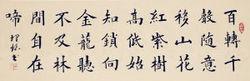 百轉千
聲隨意
移山花
紅紫樹
高低始
知鎖向
金籠聽
不及林
間自在
啼